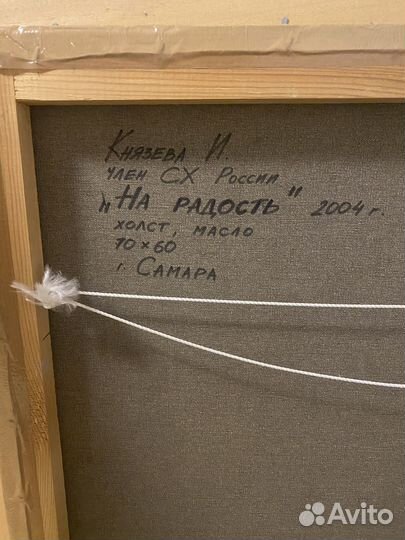 Князева И.
член СХ России
„На радость" 2004 г.
холст, масло
70×60
г. Самара
Avito